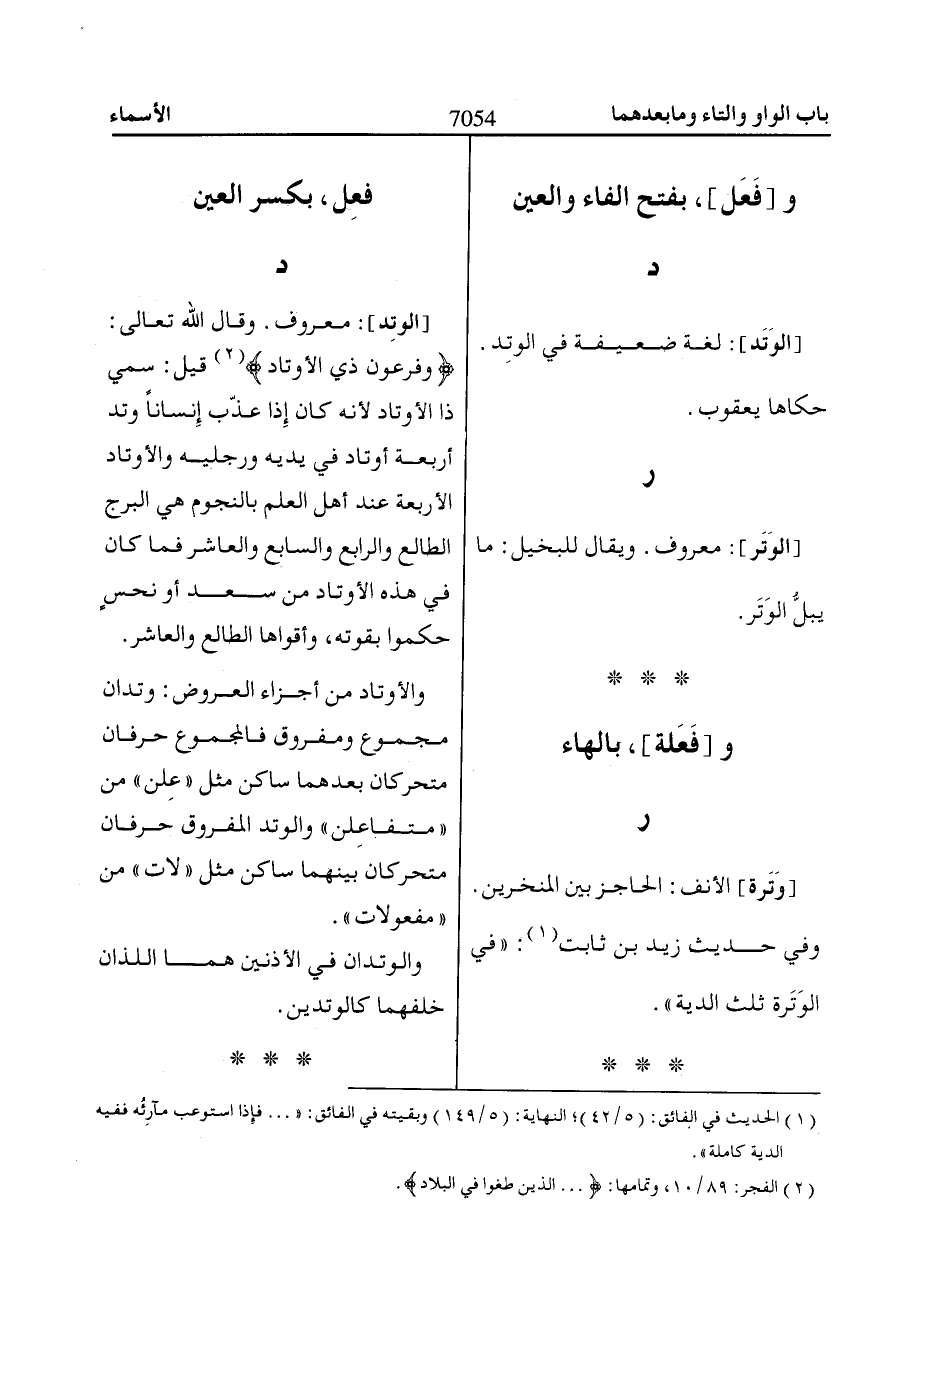 باب الواو والتاء ومابعدهما
7054
الأسماء
و [فَعَل]، بفتح الفاء والعين
د
[الوَتَد]: لغة ضعيفة في الوتِد.
حكاها يعقوب.
ر
[الوَتَر]: معروف. ويقال للبخيل: ما
يبلُّ الوَتَر.
* * *
و [فَعَلة]، بالهاء
ر
[وَتَرة] الأنف: الحاجز بين المنخرين.
وفي حديث زيد بن ثابت(١): «في
الوَتَرة ثلث الدية».
* * *
فعِل، بكسر العين
د
[الوتِد]: معروف. وقال الله تعالى:
﴿وفرعون ذي الأوتاد﴾(٢) قيل: سمي
ذا الأوتاد لأنه كان إذا عذّب إنساناً وتد
أربعة أوتاد في يديه ورجليه والأوتاد
الأربعة عند أهل العلم بالنجوم هي البرج
الطالع والرابع والسابع والعاشر فما كان
في هذه الأوتاد من سعد أو نحسٍ
حكموا بقوته، وأقواها الطالع والعاشر.
والأوتاد من أجزاء العروض: وتدان
مجموع ومفروق فالمجموع حرفان
متحركان بعدهما ساكن مثل «عِلن» من
«متفاعِلن» والوتد المفروق حرفان
متحركان بينهما ساكن مثل «لات» من
«مفعولات».
والوتدان في الأذنين هما اللذان
خلفهما كالوتدين.
* * *
(١) الحديث في الفائق: (٤٢/٥)؛ النهاية: (١٤٩/٥) وبقيته في الفائق: «... فإذا استوعب مآرنُه ففيه
الدية كاملة».
(٢) الفجر: ١٠/٨٩، وتمامها: ﴿... الذين طغوا في البلاد﴾.